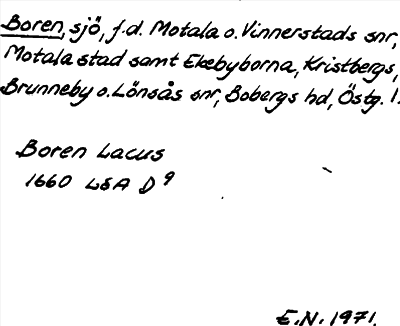 Boren, sjö, f.d. Motala o. Vinnerstads snr,
Motala stad samt Ekebyborna, Kristbergs,
Brunneby o. Lönsås snr, Bobergs hd, Östg. l.
Boren Lacus
1660 LSA D9
E.N. 1971.